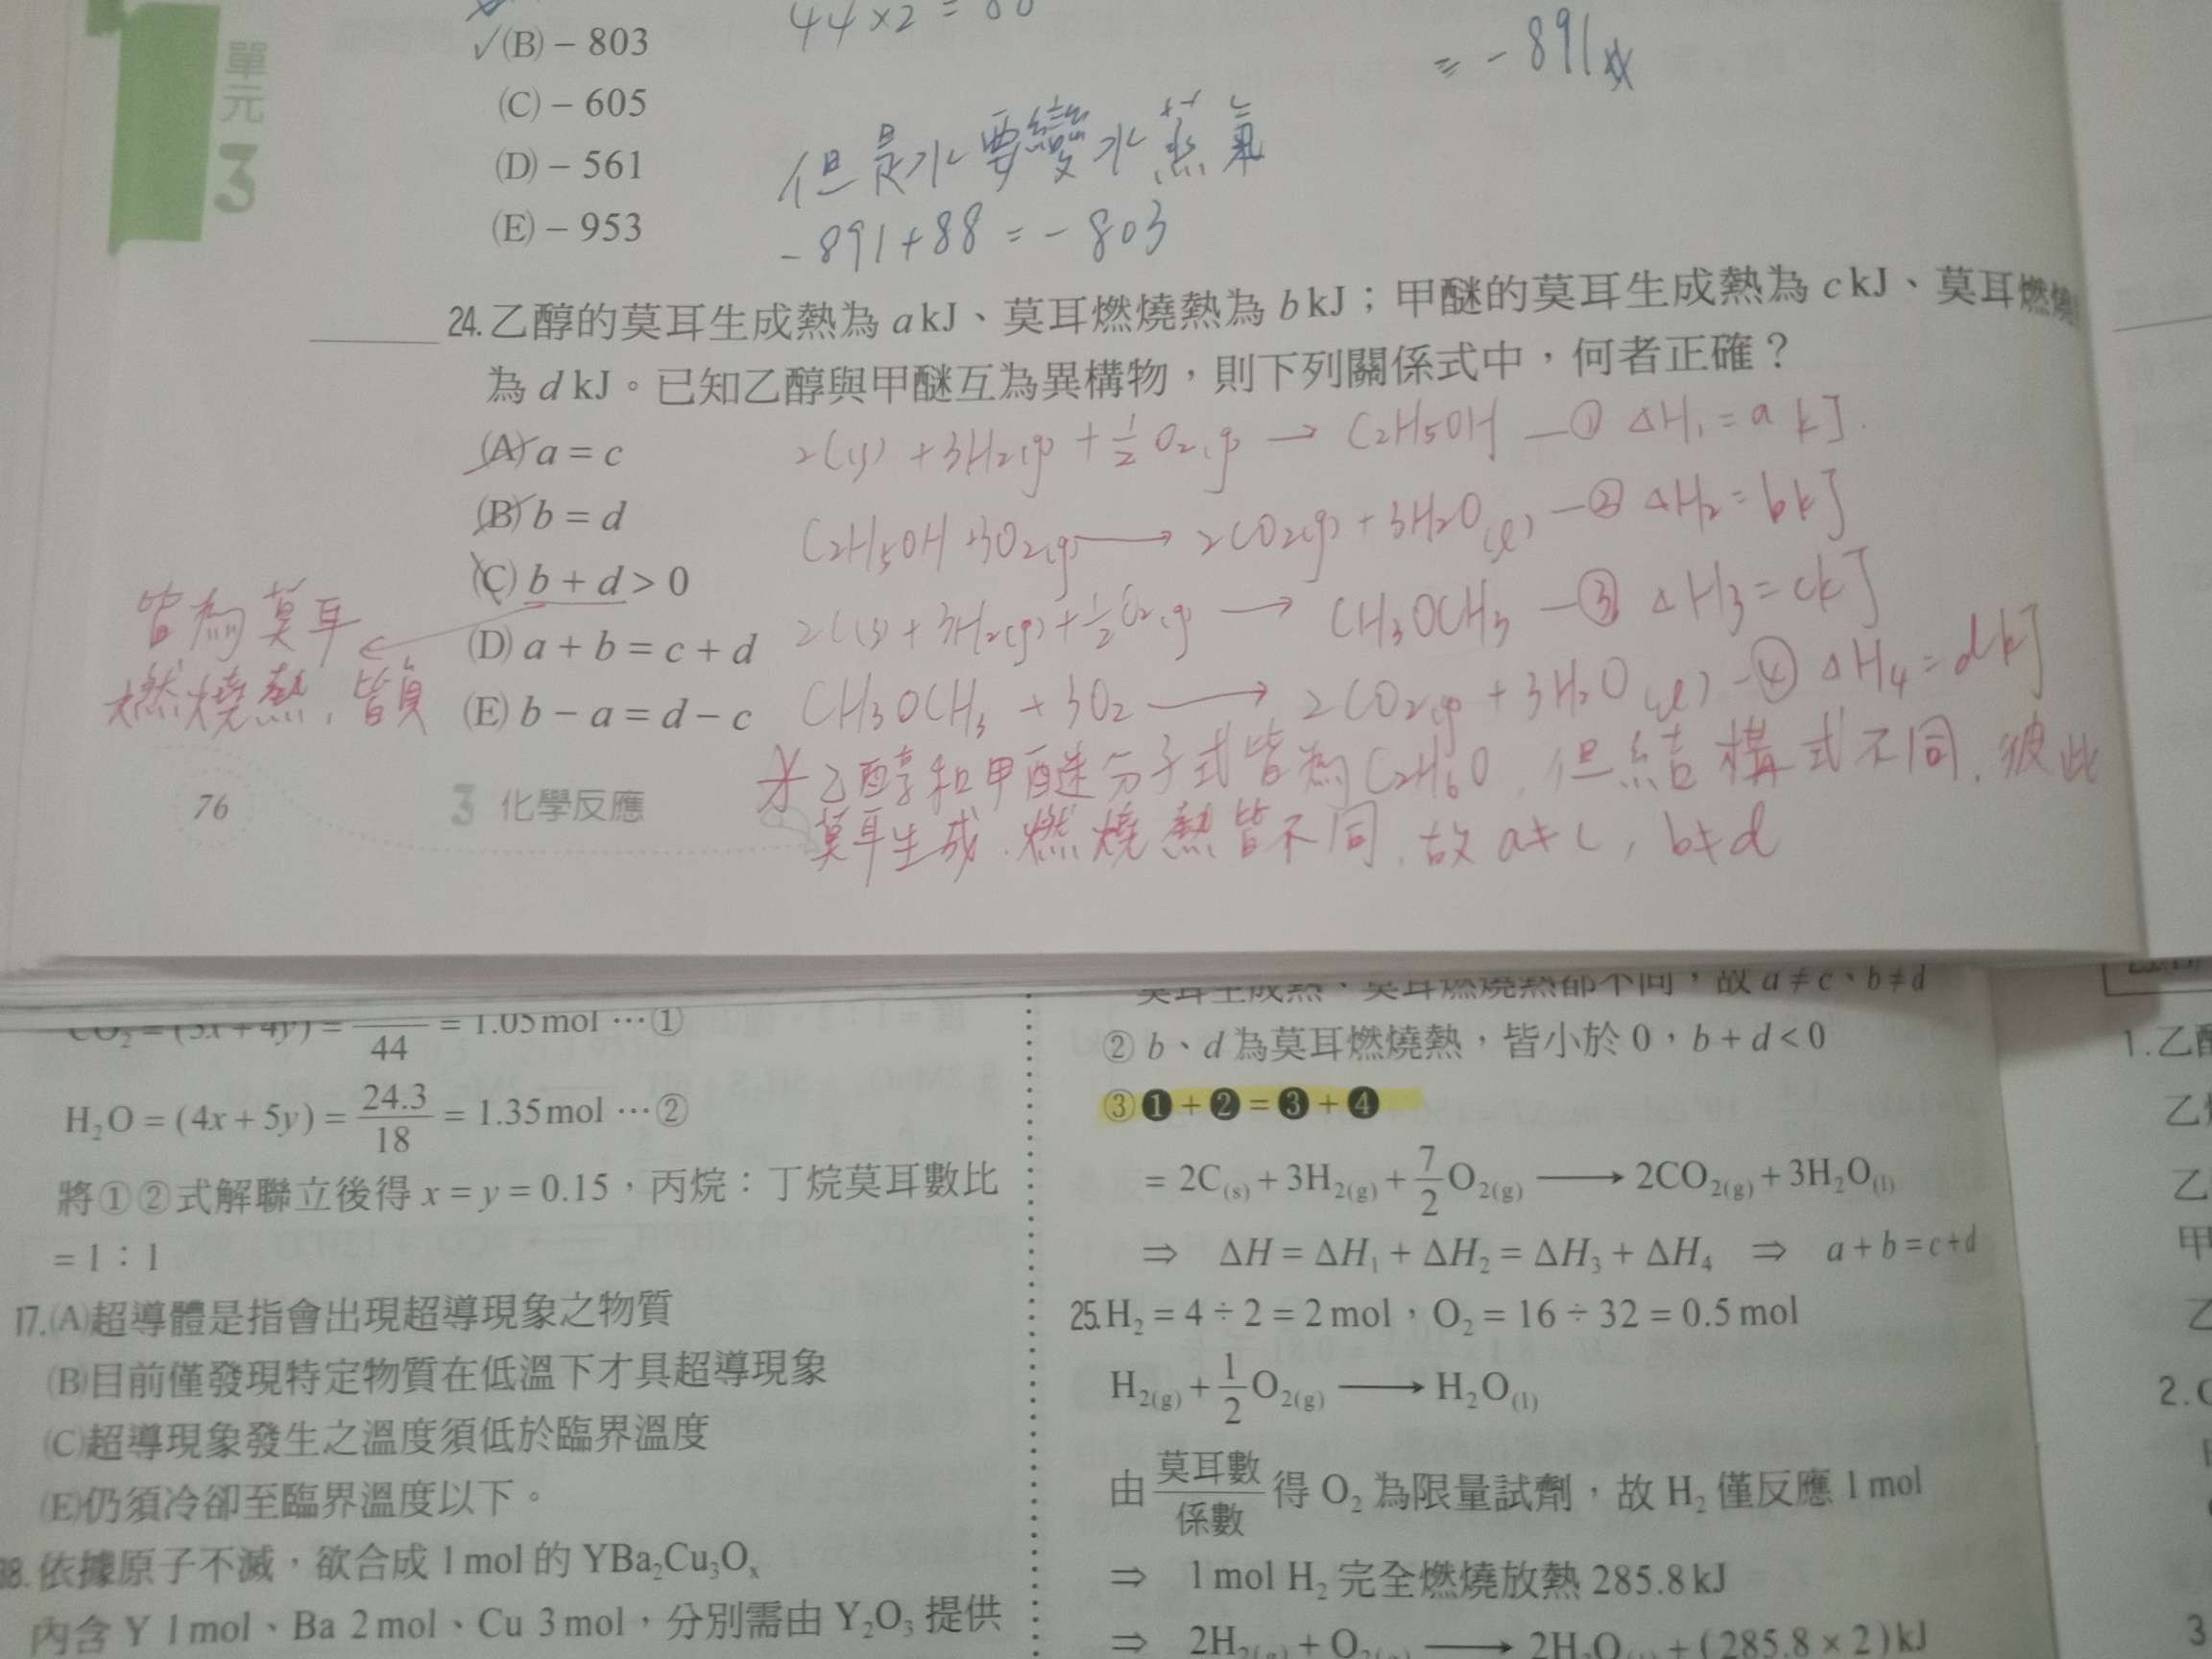 單元
3
✓(B) – 803
44×2 =
= -891
(C) – 605
(D) – 561
(E) – 953
但是水要變水蒸氣
-891+88 = -803
24. 乙醇的莫耳生成熱為 a kJ、莫耳燃燒熱為 b kJ；甲醚的莫耳生成熱為 c kJ、莫耳燃燒
為 d kJ。已知乙醇與甲醚互為異構物，則下列關係式中，何者正確？
(A) a = c
(B) b = d
(C) b + d > 0
(D) a + b = c + d
(E) b – a = d – c
2C(s) + 3H2(g) + 1/2 O2(g) → C2H5OH —① ΔH1 = a kJ.
C2H5OH + 3O2(g) → 2CO2(g) + 3H2O(l) —② ΔH2 = b kJ
2C(s) + 3H2(g) + 1/2 O2(g) → CH3OCH3 —③ ΔH3 = c kJ
CH3OCH3 + 3O2 → 2CO2(g) + 3H2O(l) —④ ΔH4 = d kJ
皆為莫耳
燃燒熱，皆負
*乙醇和甲醚分子式皆為C2H6O，但結構式不同，彼此
莫耳生成、燃燒熱皆不同，故 a≠c, b≠d
76
3 化學反應
CO₂ = (3x + 4y) = /44 = 1.05 mol …①
H₂O = (4x + 5y) = 24.3/18 = 1.35 mol …②
將①②式解聯立後得 x = y = 0.15，丙烷：丁烷莫耳數比
= 1：1
17. (A)超導體是指會出現超導現象之物質
(B)目前僅發現特定物質在低溫下才具超導現象
(C)超導現象發生之溫度須低於臨界溫度
(E)仍須冷卻至臨界溫度以下。
18. 依據原子不滅，欲合成 1 mol 的 YBa₂Cu₃Oₓ
內含 Y 1 mol、Ba 2 mol、Cu 3 mol，分別需由 Y₂O₃ 提供
莫耳生成熱、莫耳燃燒熱都不同，故 a ≠ c、b ≠ d
② b、d 為莫耳燃燒熱，皆小於 0，b + d < 0
③ ❶ + ❷ = ❸ + ❹
= 2C(s) + 3H₂(g) + 7/2 O₂(g) → 2CO₂(g) + 3H₂O(l)
⇒ ΔH = ΔH₁ + ΔH₂ = ΔH₃ + ΔH₄ ⇒ a + b = c + d
25. H₂ = 4 ÷ 2 = 2 mol，O₂ = 16 ÷ 32 = 0.5 mol
H₂(g) + 1/2 O₂(g) → H₂O(l)
由 莫耳數/係數 得 O₂ 為限量試劑，故 H₂ 僅反應 1 mol
⇒ 1 mol H₂ 完全燃燒放熱 285.8 kJ
⇒ 2H₂(g) + O₂(g) → 2H₂O(l) + (285.8 × 2) kJ
1. 乙
乙
乙
甲
乙
2. C
3